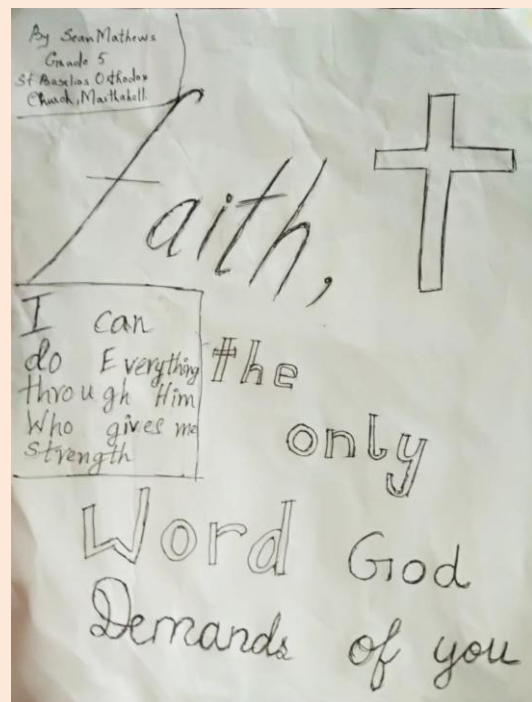 By Sean Mathews
Grade 5
St Baselios Orthodox
Church, Marthahall
Faith,
I can
do Everything
through Him
Who gives me
Strength
the
only
Word God
Demands of you